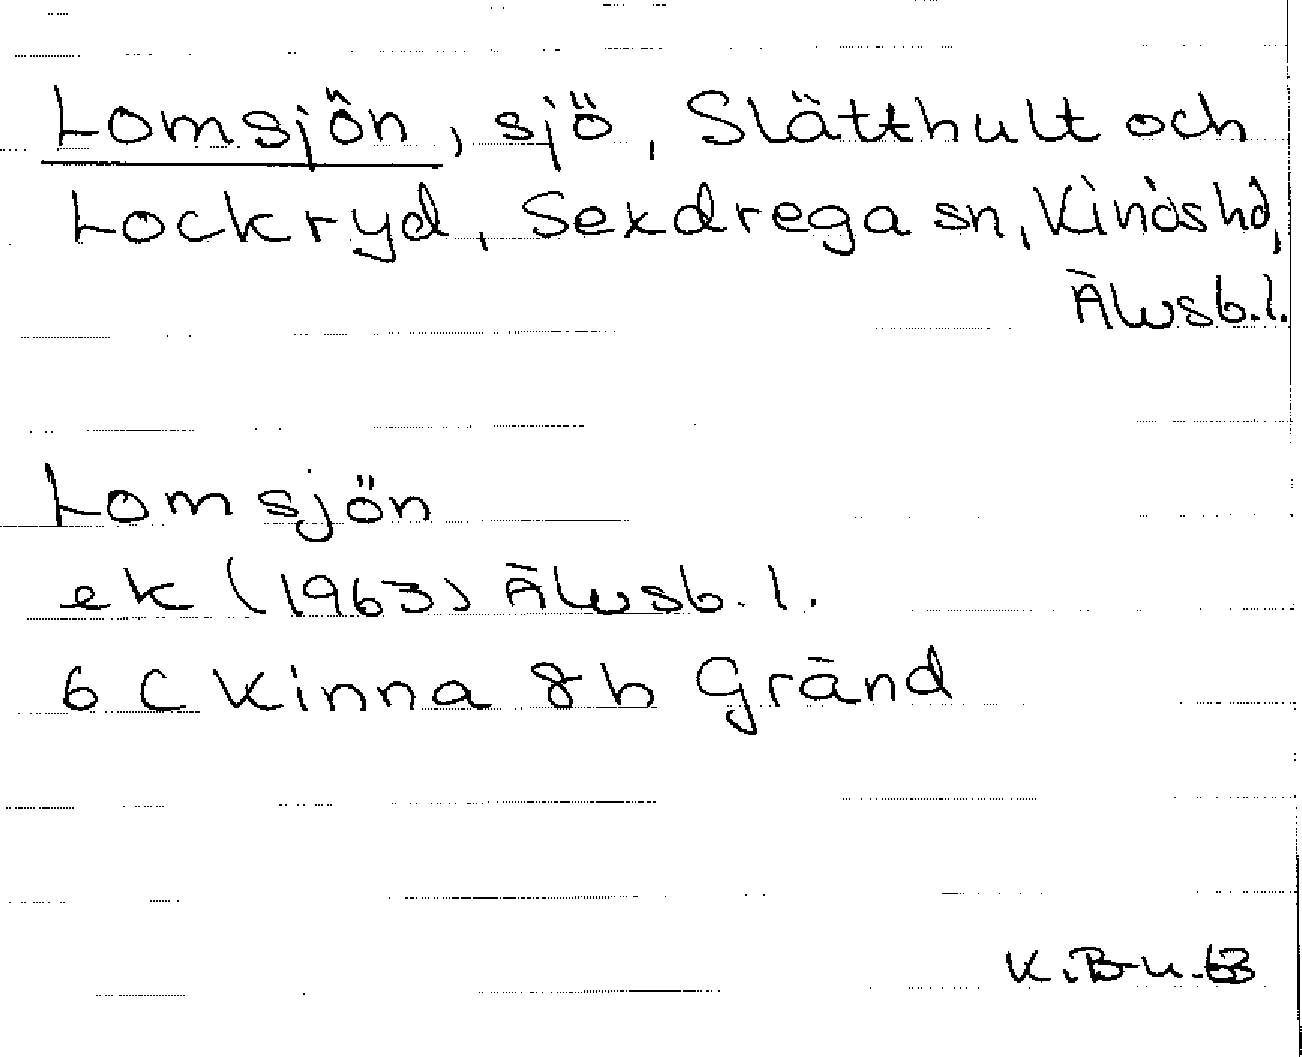 Lomsjön, sjö, Slätthult och
Lockryd, Sexdrega sn, Kinds hd,
Älvsb.l.
Lomsjön
ek (1963) Älvsb. l.
6 C Kinna 8h Gränd
K.B-n.63